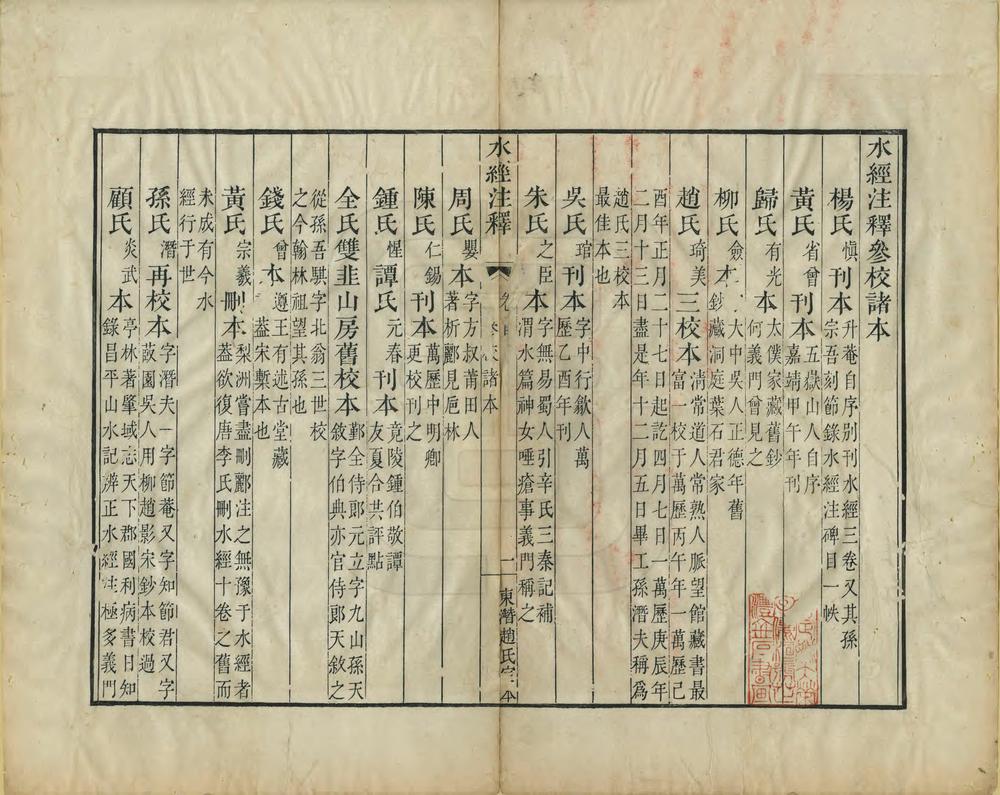 水經注釋參校諸本
楊氏慎刊本升菴自序別刊水經三卷又其孫
宗吾刻節錄水經注碑目一帙
黃氏省曾刊本五嶽山人自序
嘉靖甲午年刊
歸氏有光本太僕家藏舊鈔
何義門曾見之
柳氏僉本大中吳人正德年舊
鈔藏洞庭葉石君家
趙氏琦美三校本清常道人常熟人脈望館藏書最
富一校于萬歷丙午年一萬歷己
酉年正月二十七日起訖四月七日一萬歷庚辰年
二月十三日盡是年十二月五日畢工孫潛夫稱爲
趙氏三校本
最佳本也
吳氏琯刊本字中行歙人萬
歷乙酉年刊
朱氏之臣本字無易蜀人引辛氏三秦記補
渭水篇神女唾瘡事義門稱之
水經注釋
參校諸本
一
東潛趙氏定本
周氏嬰本字方叔莆田人
著析酈見巵林
陳氏仁錫刊本萬歷中明卿
更校刊之
鍾氏惺譚氏元春刊本竟陵鍾伯敬譚
友夏合共評點
全氏雙韭山房舊校本鄞全侍郎元立字九山孫天
敘字伯典亦官侍郎天敘之
從孫吾騏字北翁三世校
之今翰林祖望其孫也
錢氏曾本遵王有述古堂藏
葢宋槧本也
黃氏宗羲刪本梨洲嘗盡刪酈注之無豫于水經者
葢欲復唐李氏刪水經十卷之舊而
未成有今水
經行于世
孫氏潛再校本字潛夫一字節菴又字知節君又字
蔎園吳人用柳趙影宋鈔本校過
顧氏炎武本亭林著肇域志天下郡國利病書日知
錄昌平山水記辨正水經注極多義門